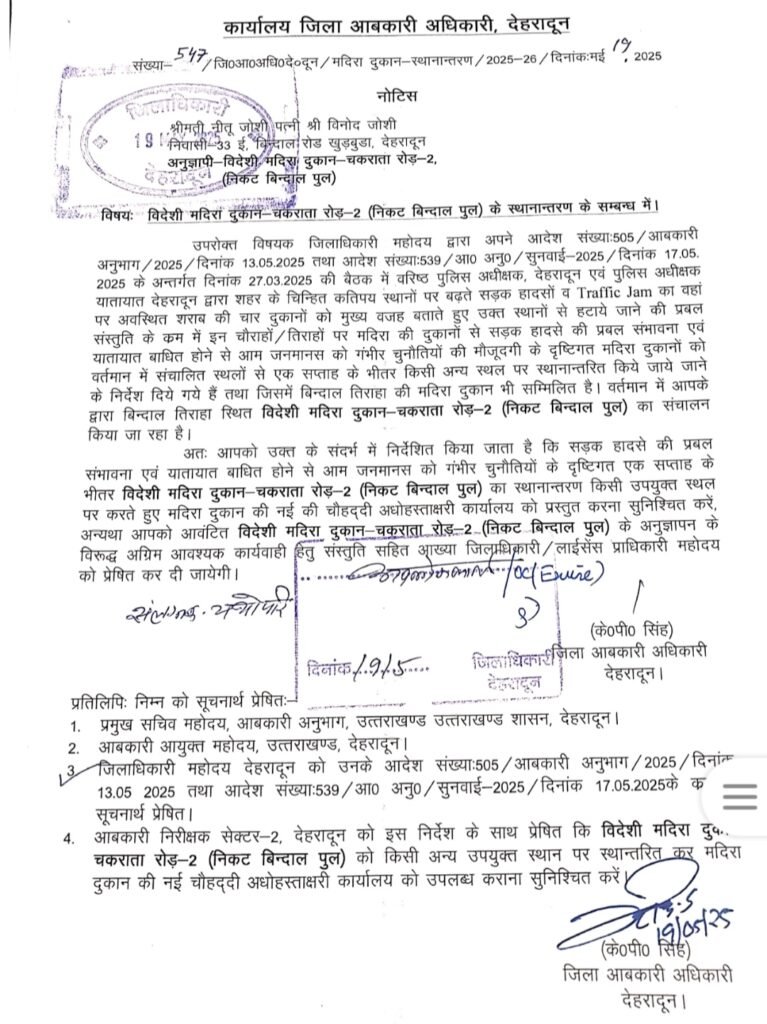 कार्यालय जिला आबकारी अधिकारी, देहरादून
संख्या- 547 /जि०आ०अधि०दे०दून/मदिरा दुकान-स्थानान्तरण/2025-26/दिनांकःमई 19, 2025
नोटिस
जिलाधिकारी
19
देहरादून
श्रीमती नीतू जोशी पत्नी श्री विनोद जोशी
निवासी-33 ई, बिन्दाल रोड खुड़बुडा, देहरादून
अनुज्ञापी-विदेशी मदिरा दुकान-चकराता रोड़-2,
(निकट बिन्दाल पुल)
विषयः विदेशी मदिरा दुकान-चकराता रोड़-2 (निकट बिन्दाल पुल) के स्थानान्तरण के सम्बन्ध में।
उपरोक्त विषयक जिलाधिकारी महोदय द्वारा अपने आदेश संख्याः505/आबकारी
अनुभाग/2025/दिनांक 13.05.2025 तथा आदेश संख्याः539/आ0 अनु0/सुनवाई-2025/दिनांक 17.05.
2025 के अन्तर्गत दिनांक 27.03.2025 की बैठक में वरिष्ठ पुलिस अधीक्षक, देहरादून एवं पुलिस अधीक्षक
यातायात देहरादून द्वारा शहर के चिन्हित कतिपय स्थानों पर बढ़ते सड़क हादसों व Traffic Jam का वहां
पर अवस्थित शराब की चार दुकानों को मुख्य वजह बताते हुए उक्त स्थानों से हटाये जाने की प्रबल
संस्तुति के कम में इन चौराहों/तिराहों पर मदिरा की दुकानों से सड़क हादसे की प्रबल संभावना एवं
यातायात बाधित होने से आम जनमानस को गंभीर चुनौतियों की मौजूदगी के दृष्टिगत मदिरा दुकानों को
वर्तमान में संचालित स्थलों से एक सप्ताह के भीतर किसी अन्य स्थल पर स्थानान्तरित किये जाये जाने
के निर्देश दिये गये हैं तथा जिसमें बिन्दाल तिराहा की मदिरा दुकान भी सम्मिलित है। वर्तमान में आपके
द्वारा बिन्दाल तिराहा स्थित विदेशी मदिरा दुकान-चकराता रोड़-2 (निकट बिन्दाल पुल) का संचालन
किया जा रहा है।
अतः आपको उक्त के संदर्भ में निर्देशित किया जाता है कि सड़क हादसे की प्रबल
संभावना एवं यातायात बाधित होने से आम जनमानस को गंभीर चुनौतियों के दृष्टिगत एक सप्ताह के
भीतर विदेशी मदिरा दुकान-चकराता रोड़-2 (निकट बिन्दाल पुल) का स्थानान्तरण किसी उपयुक्त स्थल
पर करते हुए मदिरा दुकान की नई की चौहद्दी अधोहस्ताक्षरी कार्यालय को प्रस्तुत करना सुनिश्चित करें,
अन्यथा आपको आवंटित विदेशी मदिरा दुकान-चकराता रोड़-2 (निकट बिन्दाल पुल) के अनुज्ञापन के
विरूद्ध अग्रिम आवश्यक कार्यवाही हेतु संस्तुति सहित आख्या जिलाधिकारी/लाईसेंस प्राधिकारी महोदय
को प्रेषित कर दी जायेगी।
संलग्नक-यथोपरि
/OC(Excise)
दिनांक 19/5
जिलाधिकारी
देहरादून
(के०पी० सिंह)
जिला आबकारी अधिकारी
देहरादून।
प्रतिलिपिः निम्न को सूचनार्थ प्रेषितः-
1. प्रमुख सचिव महोदय, आबकारी अनुभाग, उत्तराखण्ड उत्तराखण्ड शासन, देहरादून।
2. आबकारी आयुक्त महोदय, उत्तराखण्ड, देहरादून।
3. जिलाधिकारी महोदय देहरादून को उनके आदेश संख्याः505/आबकारी अनुभाग/2025/दिनांक
13.05 2025 तथा आदेश संख्याः539/आ0 अनु0/सुनवाई-2025/दिनांक 17.05.2025के
सूचनार्थ प्रेषित।
4. आबकारी निरीक्षक सेक्टर-2, देहरादून को इस निर्देश के साथ प्रेषित कि विदेशी मदिरा
चकराता रोड़-2 (निकट बिन्दाल पुल) को किसी अन्य उपयुक्त स्थान पर स्थान्तरित कर मदिरा
दुकान की नई चौहद्दी अधोहस्ताक्षरी कार्यालय को उपलब्ध कराना सुनिश्चित करें।
19/05/25
(के०पी० सिंह)
जिला आबकारी अधिकारी
देहरादून।